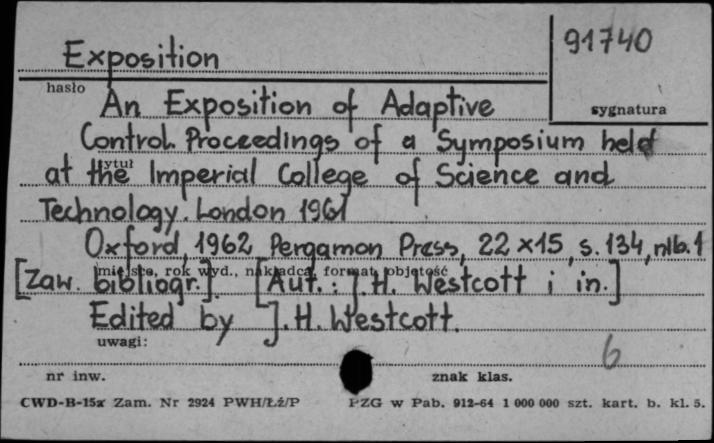 Exposition
91740
hasło
sygnatura
An Exposition of Adaptive
Control. Proceedings of a Symposium held
tytuł
at the Imperial College of Science and
Technology. London 1961
Oxford, 1962 Pergamon Press, 22x15, s. 134, nlb. 1
miejsce, rok wyd., nakładca, format, objętość
[Zaw. bibliogr.]. [Aut.: J.H. Westcott i in.]
Edited by J.H. Westcott.
uwagi:
6
nr inw.
znak klas.
CWD-B-15x Zam. Nr 2924 PWH/Łź/P PZG w Pab. 912-64 1 000 000 szt. kart. b. kl. 5.